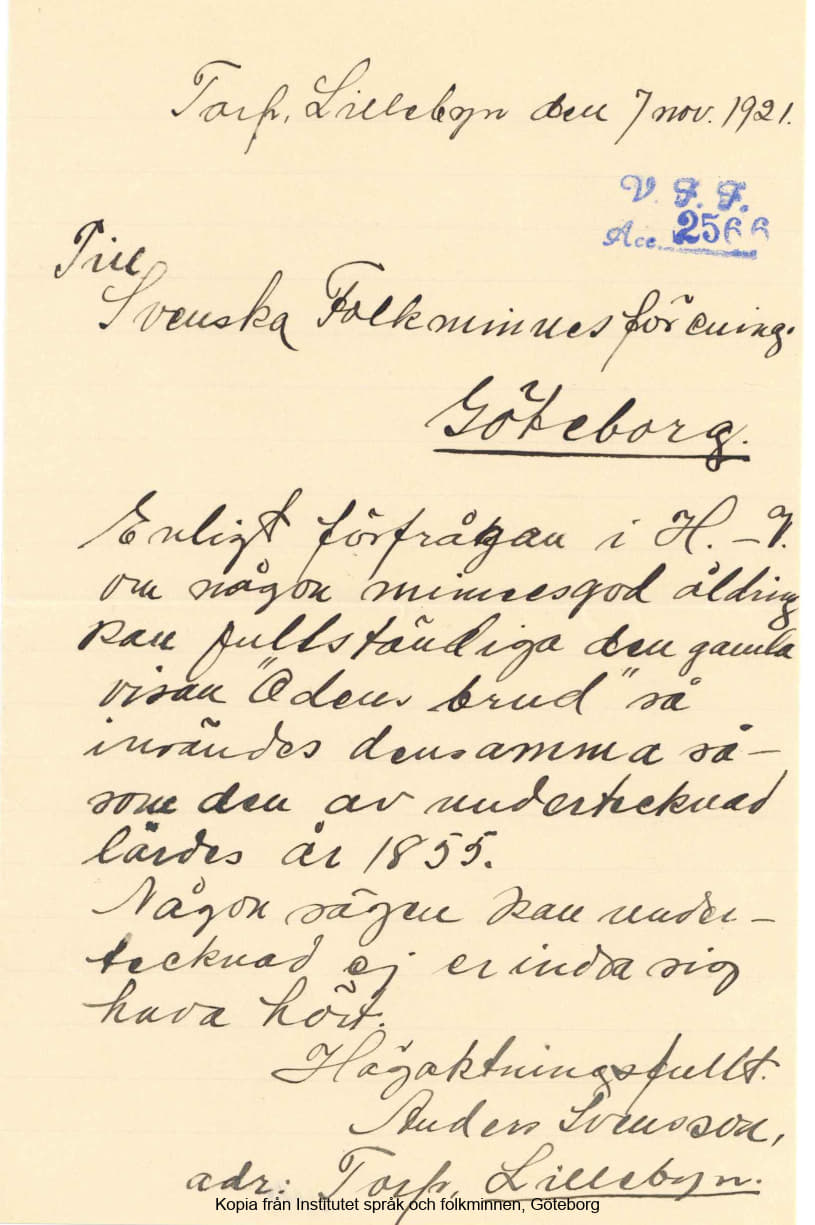 Torp, Lillebyn den 7 nov. 1921.
V. F. F.
Acc. 2566
Till
Svenska Folkminnesförening.
Göteborg.
Enligt förfrågan i H. - T.
om någon minnesgod åldring
kan fullständiga den gamla
visan "Odens brud" så
insändes densamma så-
som den av undertecknad
lärdes år 1855.
Någon sägen kan under-
tecknad ej erindra sig
hava hört.
Högaktningsfullt.
Anders Svensson,
adr: Torp, Lillebyn.
Kopia från Institutet språk och folkminnen, Göteborg